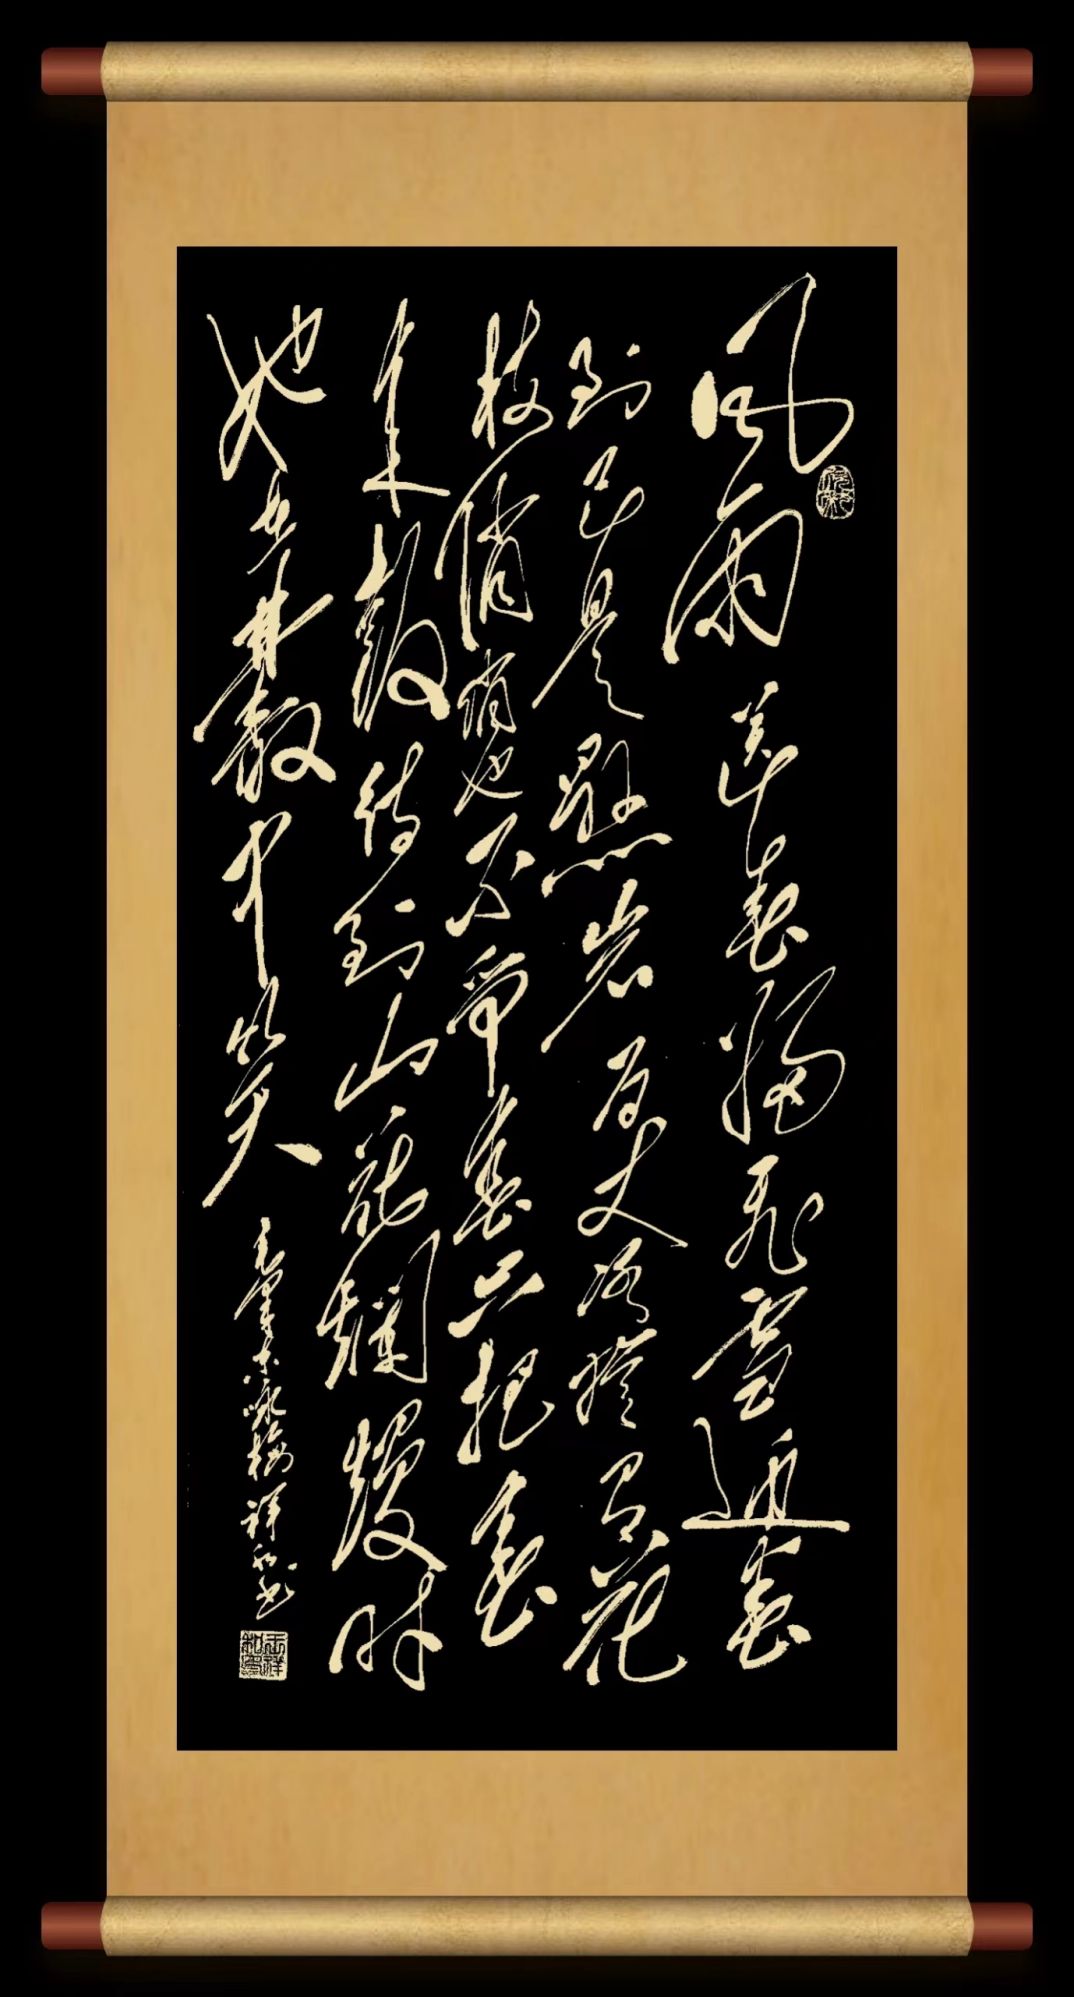 風雨送春歸飛雪迎春
到已是懸岩百丈冰猶有花
枝俏俏也不爭春只把春
來報待到山花爛熳時
她在叢中笑
毛澤東咏梅祥和書